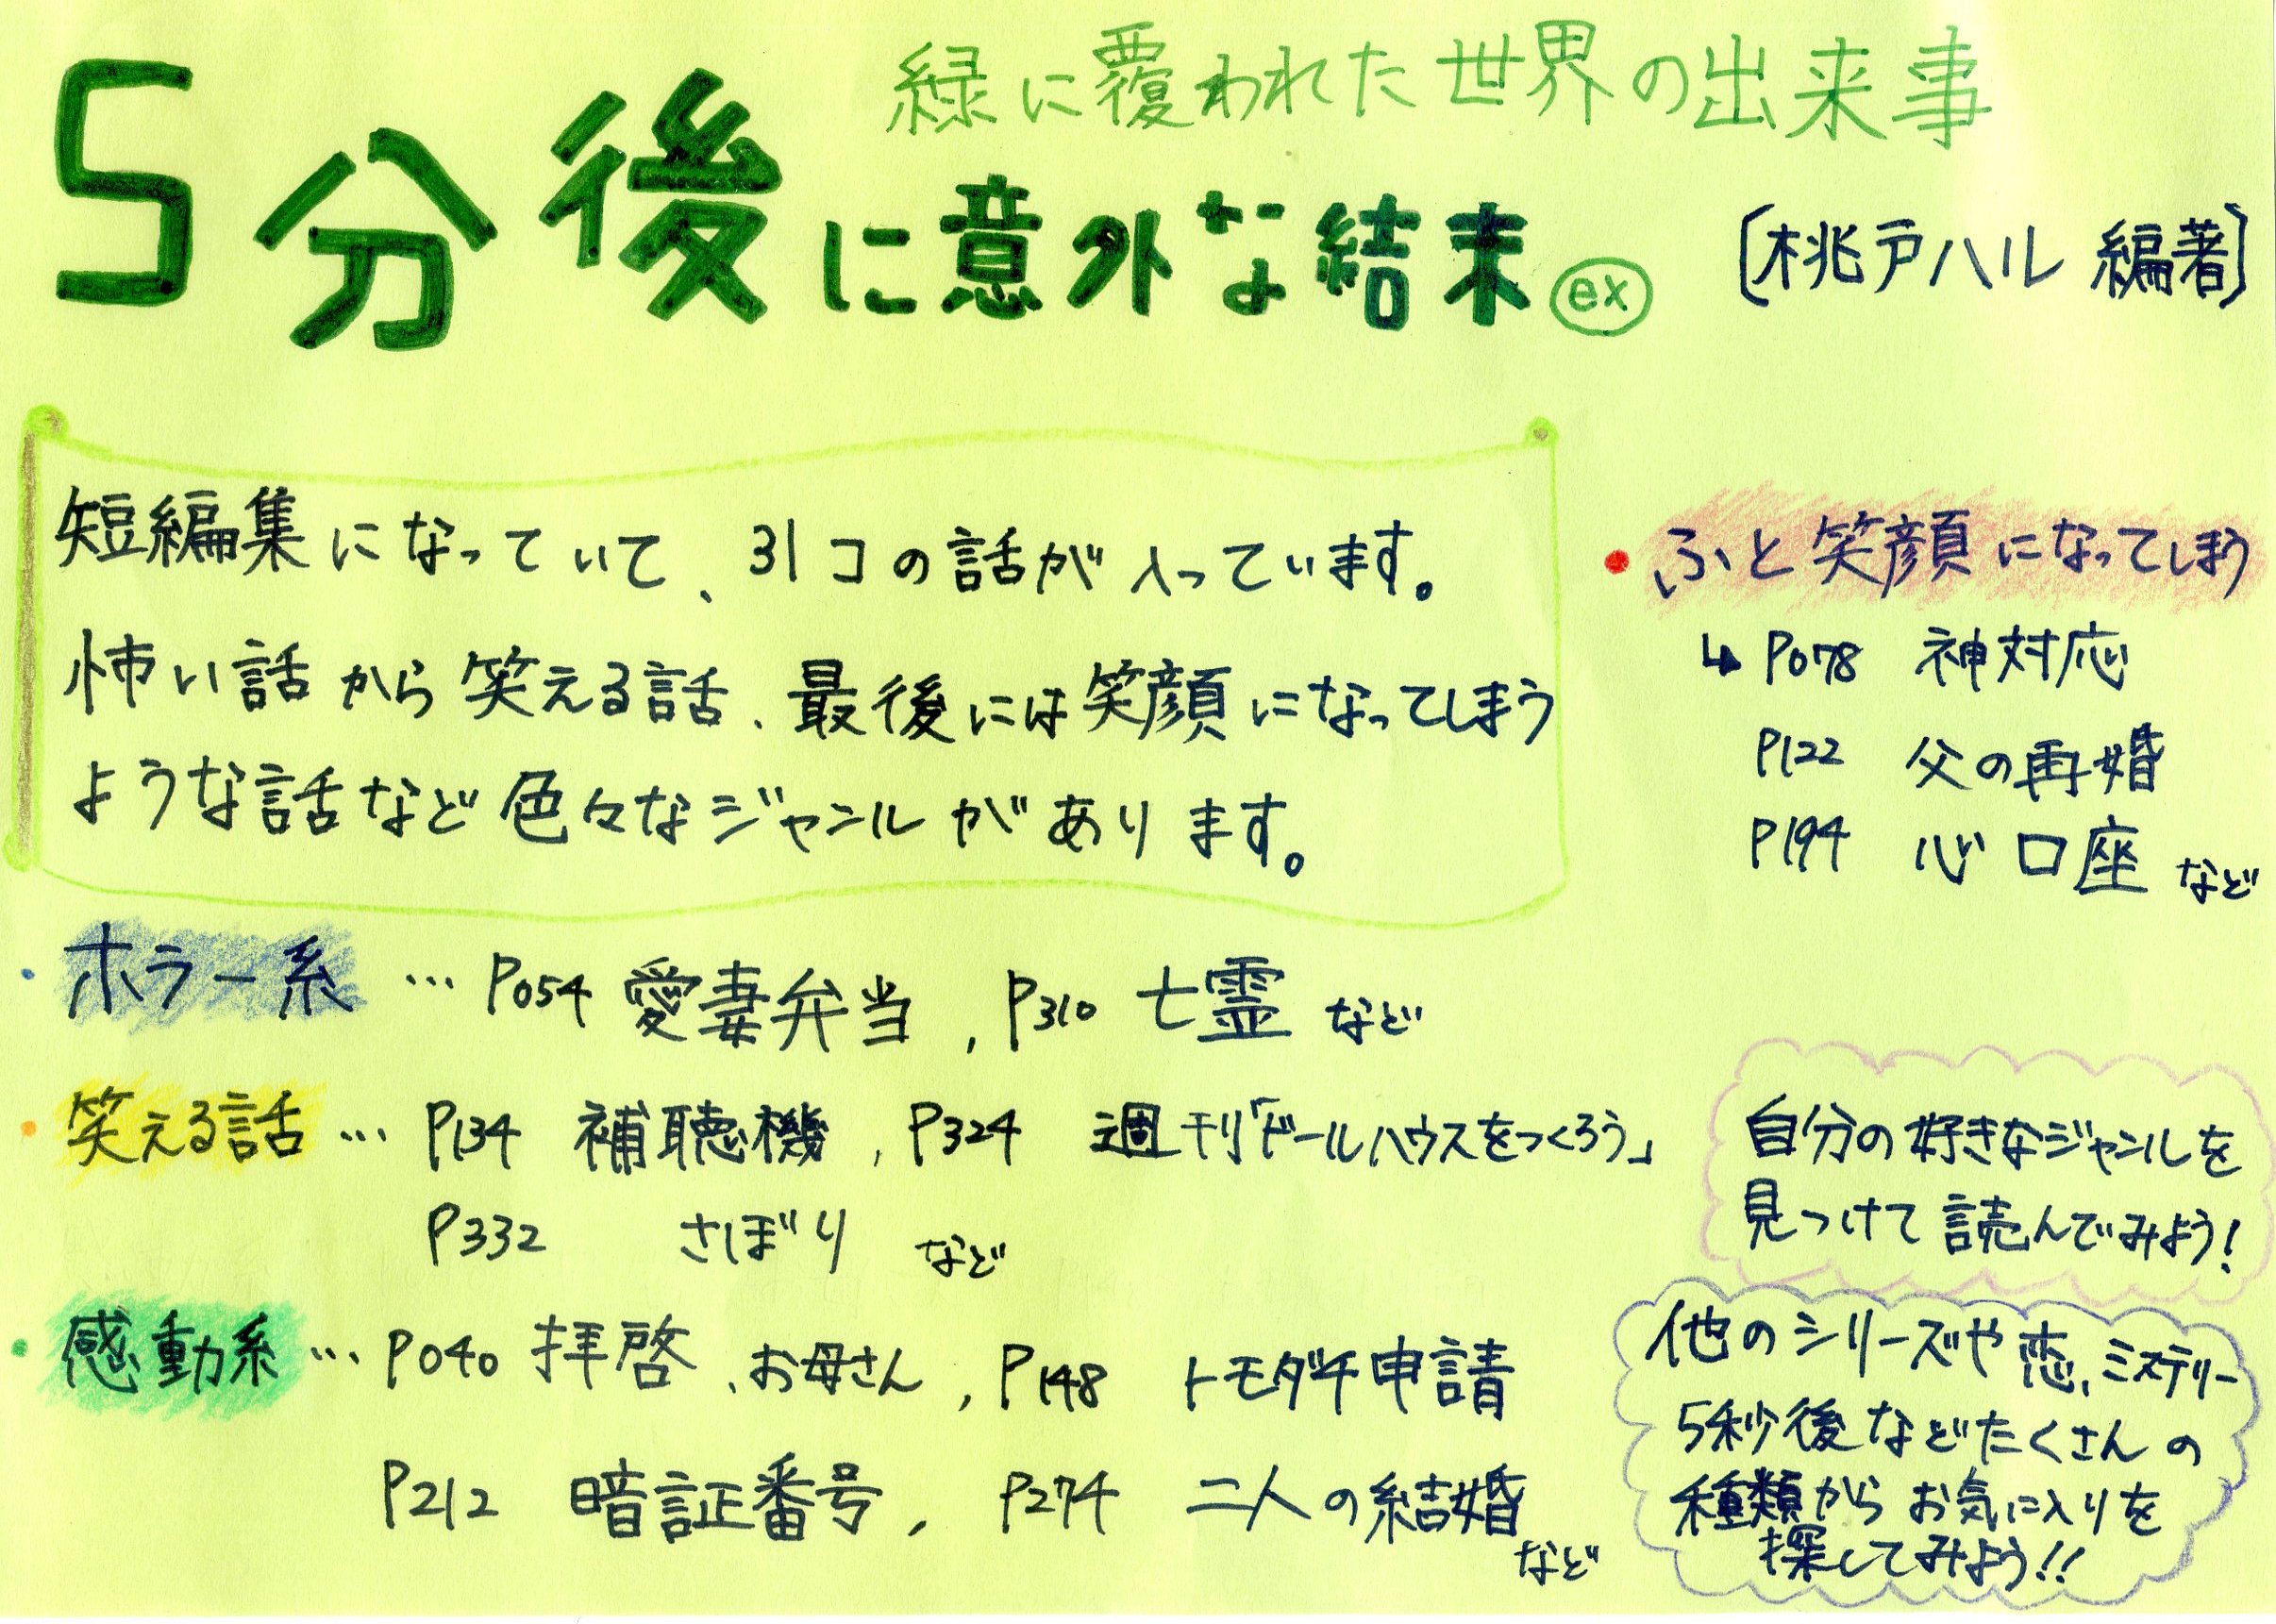 緑に覆われた世界の出来事
5分後に意外な結末 ex
〔桃戸ハル 編著〕
短編集になっていて、31コの話が入っています。
怖い話から笑える話、最後には笑顔になってしまう
ような話など色々なジャンルがあります。
・ふと笑顔になってしまう
↳ P078 神対応
P122 父の再婚
P194 心口座 など
・ホラー系 … P054 愛妻弁当 , P310 亡霊 など
・笑える話 … P134 補聴機 , P324 週刊「ドールハウスをつくろう」
P332 さぼり など
・感動系 … P040 拝啓、お母さん , P148 トモダチ申請
P212 暗証番号 , P274 二人の結婚
など
自分の好きなジャンルを
見つけて読んでみよう!
他のシリーズや恋、ミステリー
5秒後などたくさんの
種類からお気に入りを
探してみよう!!